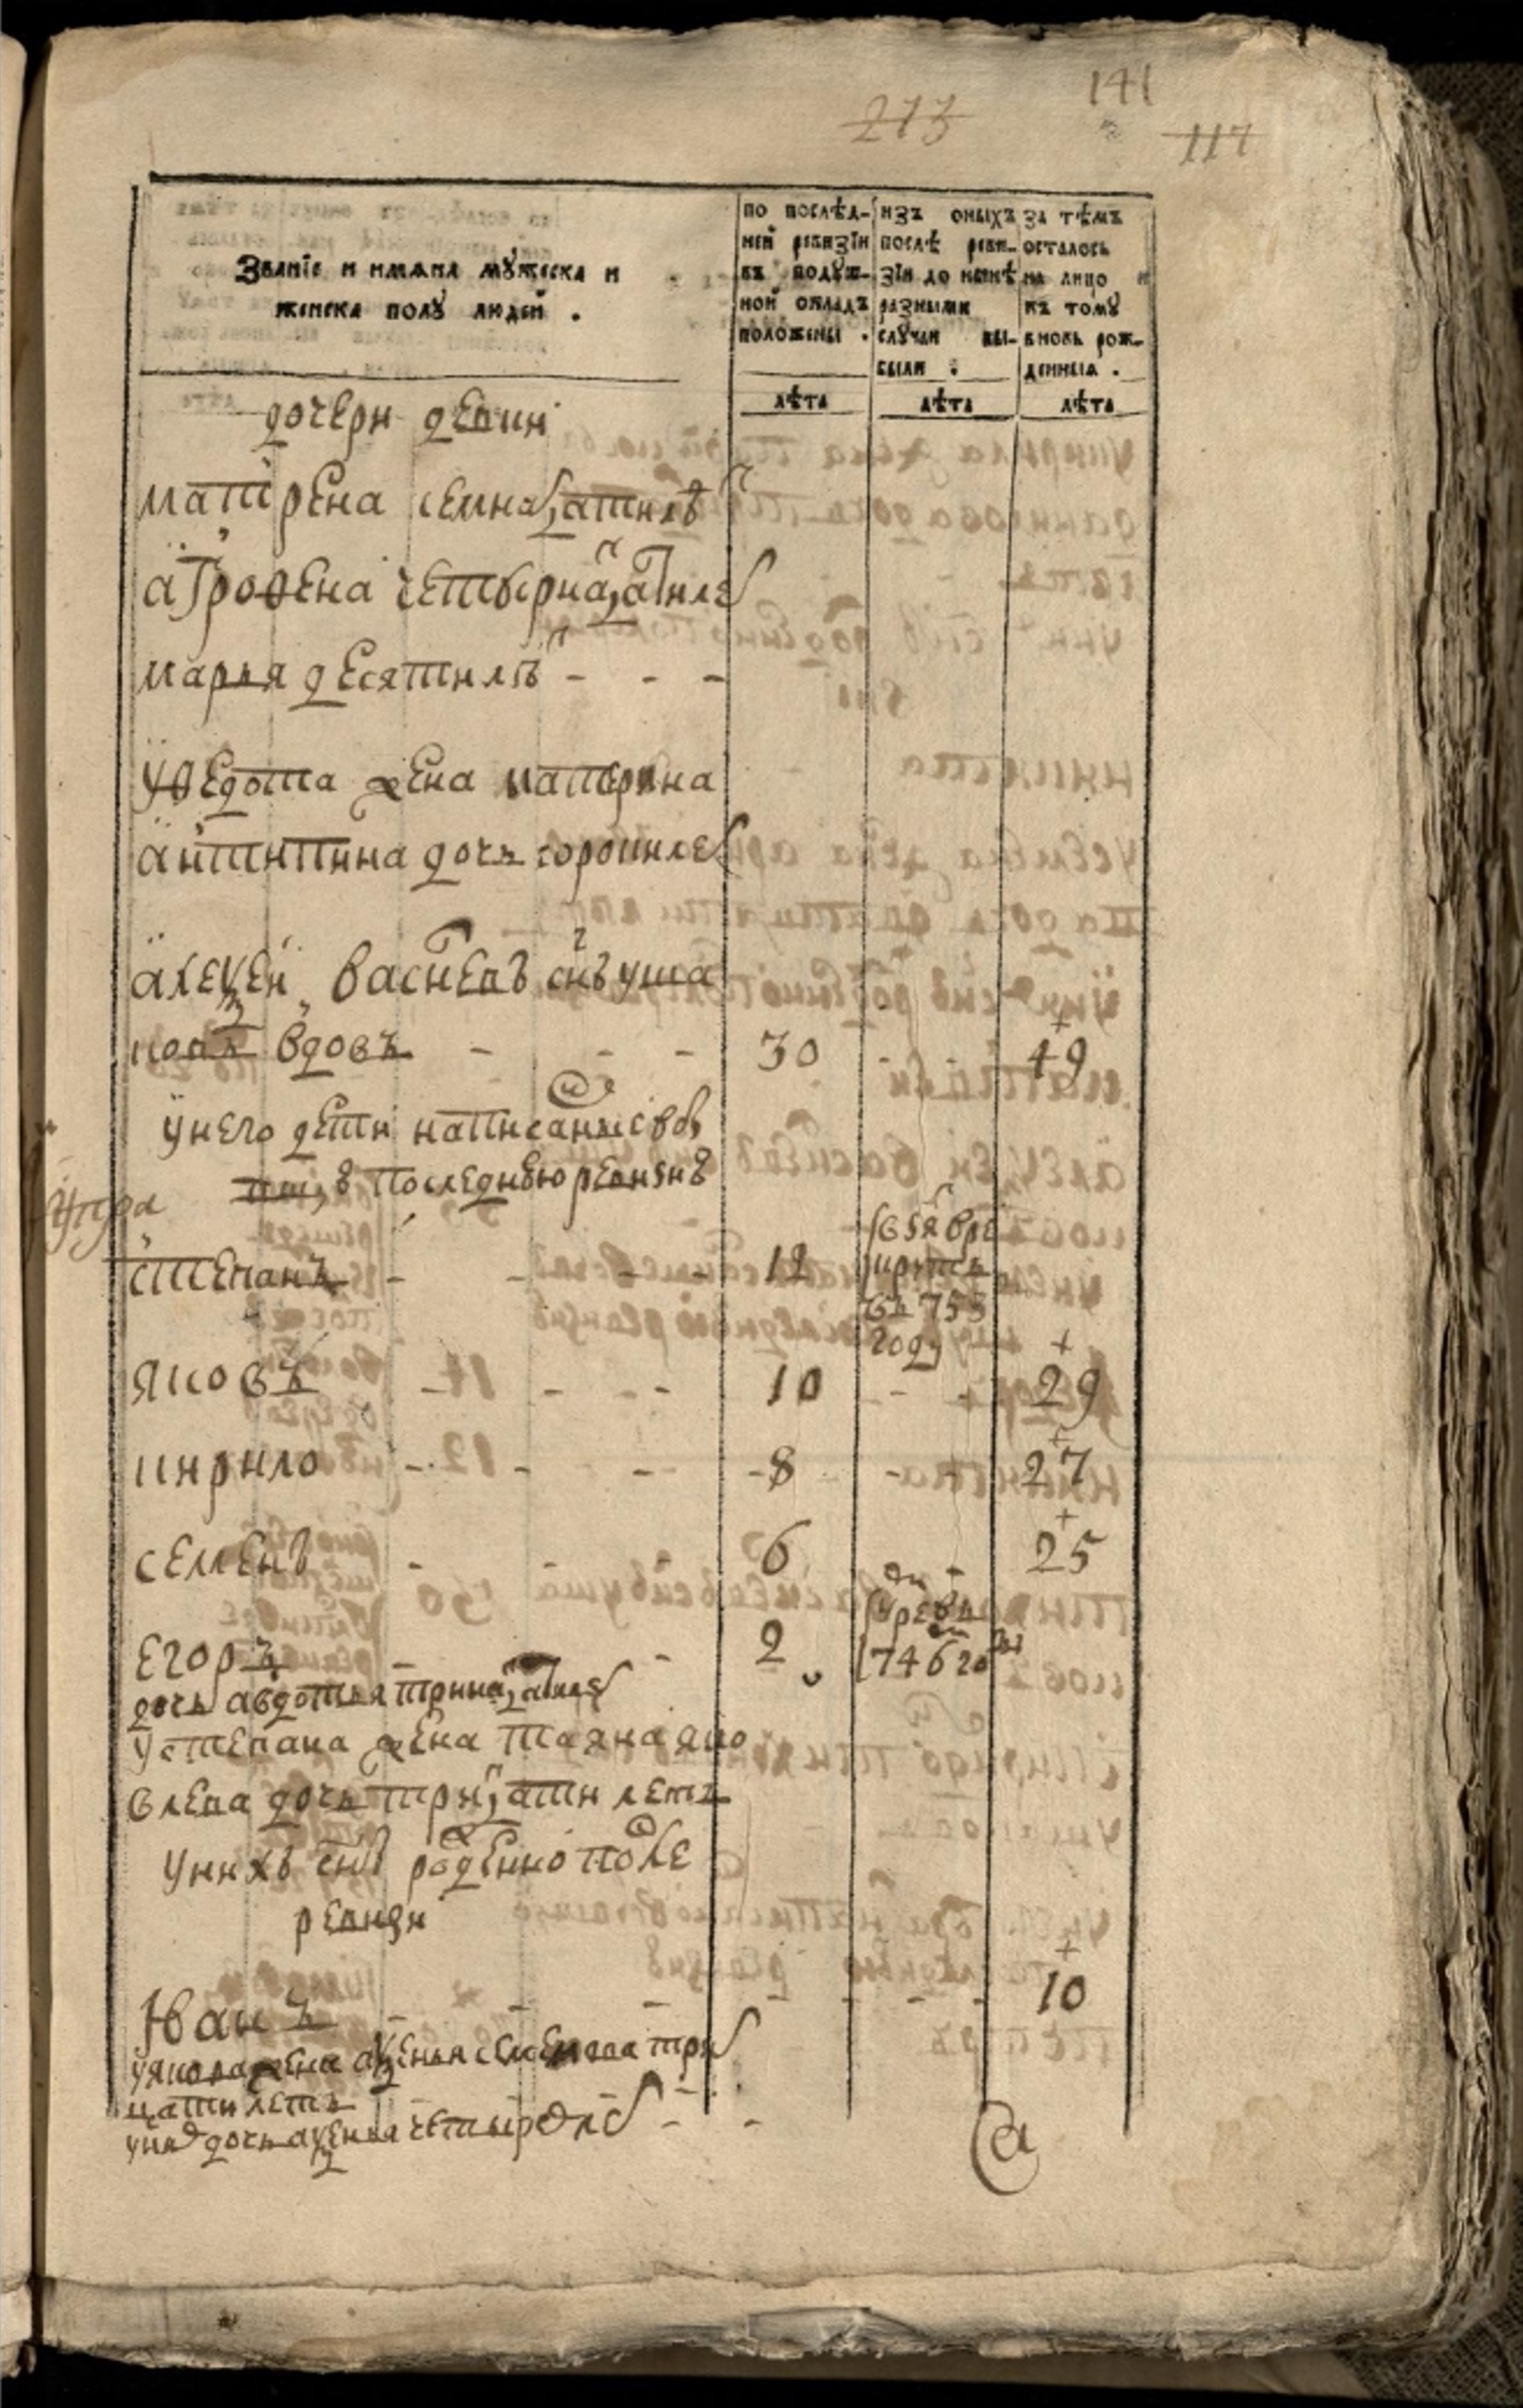 273
141
117
Званїе и имѧна мꙋжеска и
женска полꙋ людей .
по послѣд-
ней ревизїи
въ подꙋш-
ной окладъ
положены .
изъ оныхъ
послѣ реви-
зїи до нынѣ
разными
слꙋчаи вы-
были .
за тѣмъ
осталось
на лицо и
къ томꙋ
вновь рож-
денныя .
лѣта лѣта лѣта
дочери девки
матрена семнатцати лѣ
аграфена четырнатцати ле
марья десяти лѣ - - -
у федота жена катерина
дочь сорокиле
алеѯей васильевъ снъ уша
ковъ вдовъ - - - 30 - 49
у него дети написанные в
последнею ревизиѣ
степанъ - - - 12
755
году
яковъ - - - - 10 - - 29
кирило - - - - 8 - 27
семенъ - - - 6 - 25
егоръ - - 2
746 го
дочь авдотья тринатцати ле
у степана жена татьяна яко
влева дочь тритцати летъ
у нихъ снъ рожденно после
ревизи
Иванъ - - - - - - 10
у якова жена аѯенья семенова три
цати летъ
у них дочь аѯенья четырех ле - -